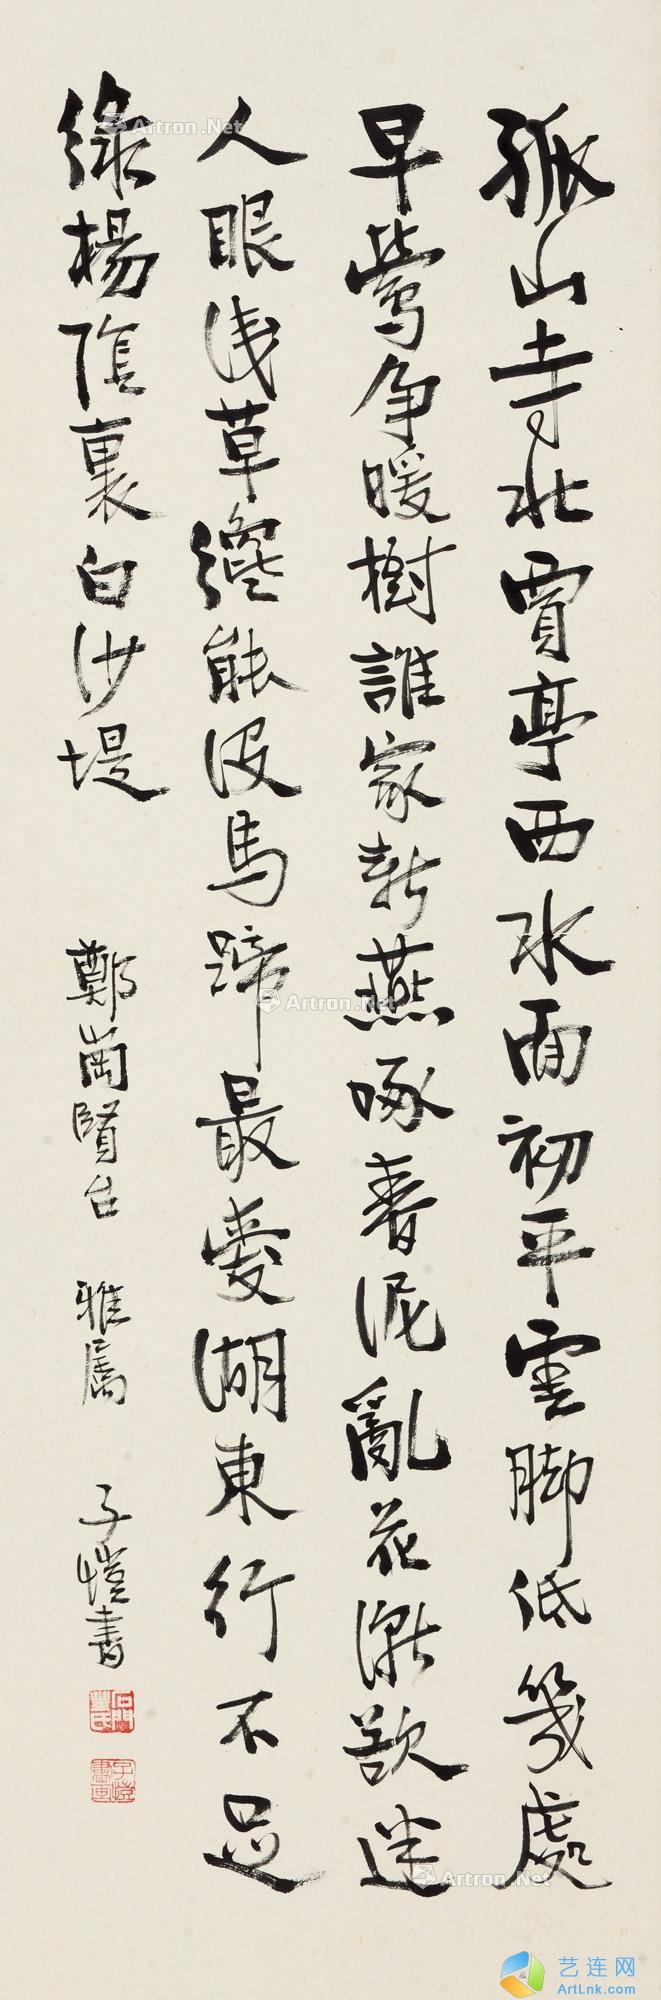 孤山寺北賈亭西水面初平雲脚低幾處
早鶯争暖樹誰家新燕啄春泥亂花漸欲迷
人眼浅草纔能没馬蹄最愛湖東行不足
綠楊陰裏白沙堤
鄭崗賢台 雅属 子愷書
石門豐氏
子愷書画
Artron.Net
Artron.Net
Artron.Net
Artron.Net
Artron.Net
艺连网
ArtLnk.com